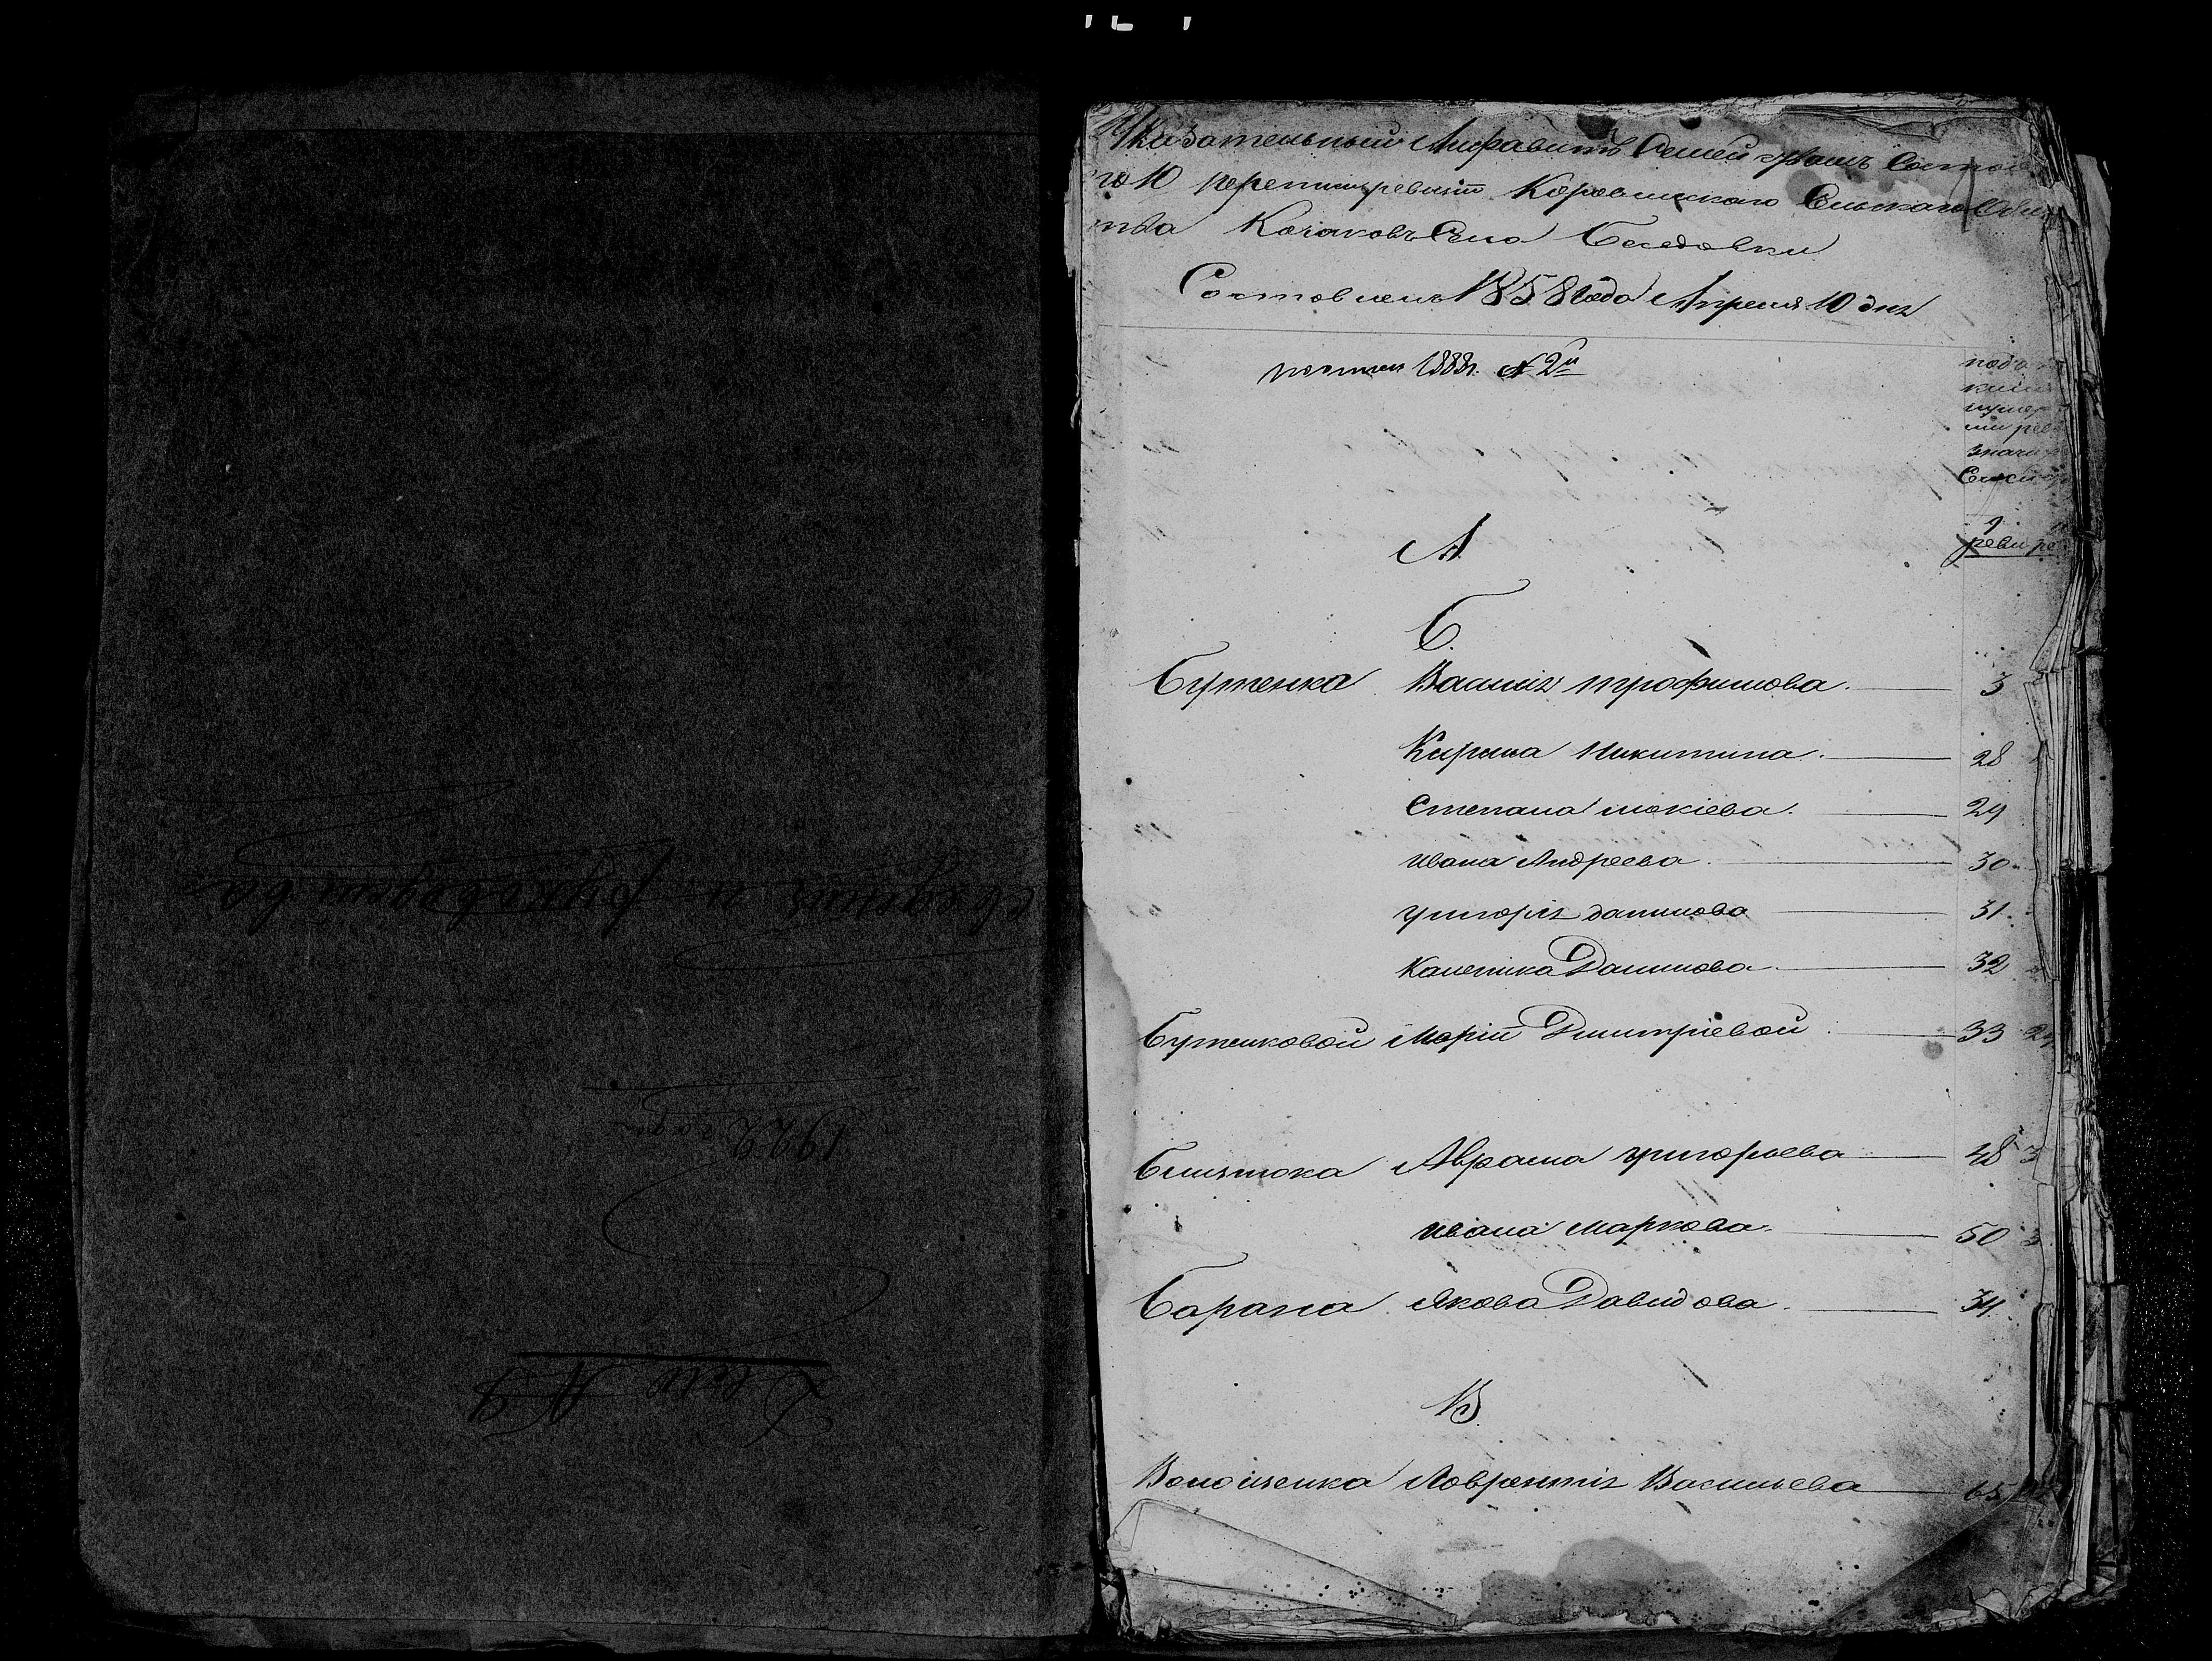 Указательный Алфавитъ Семействамъ Состоя
по 10 переписи ревизіи Коровинскаго Сельскаго Обще
тва Козаковъ Села Беседовки
Составленъ 1858 Года Апреля 10 дня
1888г. № 2й
подъ
ми рев
значи
9
реви ре
А
Б.
Бутенка Василія трофимова. 3
Кирила Никитина. 28
Степана мокіева. 29
Ивана Андреева. 30
григорія данилова 31.
Каленика Данилова 32
Бутенковой Маріи Дмитріевой 33 24
Аврама григорьева 48 3
Ивана маркова. 50 3
Барана Якова Давидова. 34.
В.
Волошенка Лаврентія Васильева 65
руководства
1922 года
Дело № 9